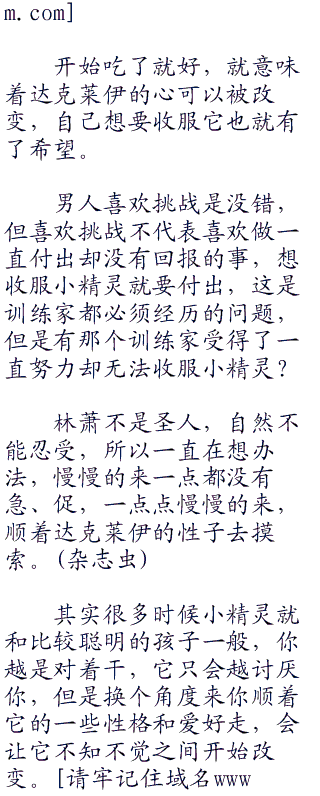 m.com]
开始吃了就好，就意味
着达克莱伊的心可以被改
变，自己想要收服它也就有
了希望。
男人喜欢挑战是没错，
但喜欢挑战不代表喜欢做一
直付出却没有回报的事，想
收服小精灵就要付出，这是
训练家都必须经历的问题，
但是有那个训练家受得了一
直努力却无法收服小精灵？
林萧不是圣人，自然不
能忍受，所以一直在想办
法，慢慢的来一点都没有
急、促，一点点慢慢的来，
顺着达克莱伊的性子去摸
索。(杂志虫)
其实很多时候小精灵就
和比较聪明的孩子一般，你
越是对着干，它只会越讨厌
你，但是换个角度来你顺着
它的一些性格和爱好走，会
让它不知不觉之间开始改
变。[请牢记住域名www